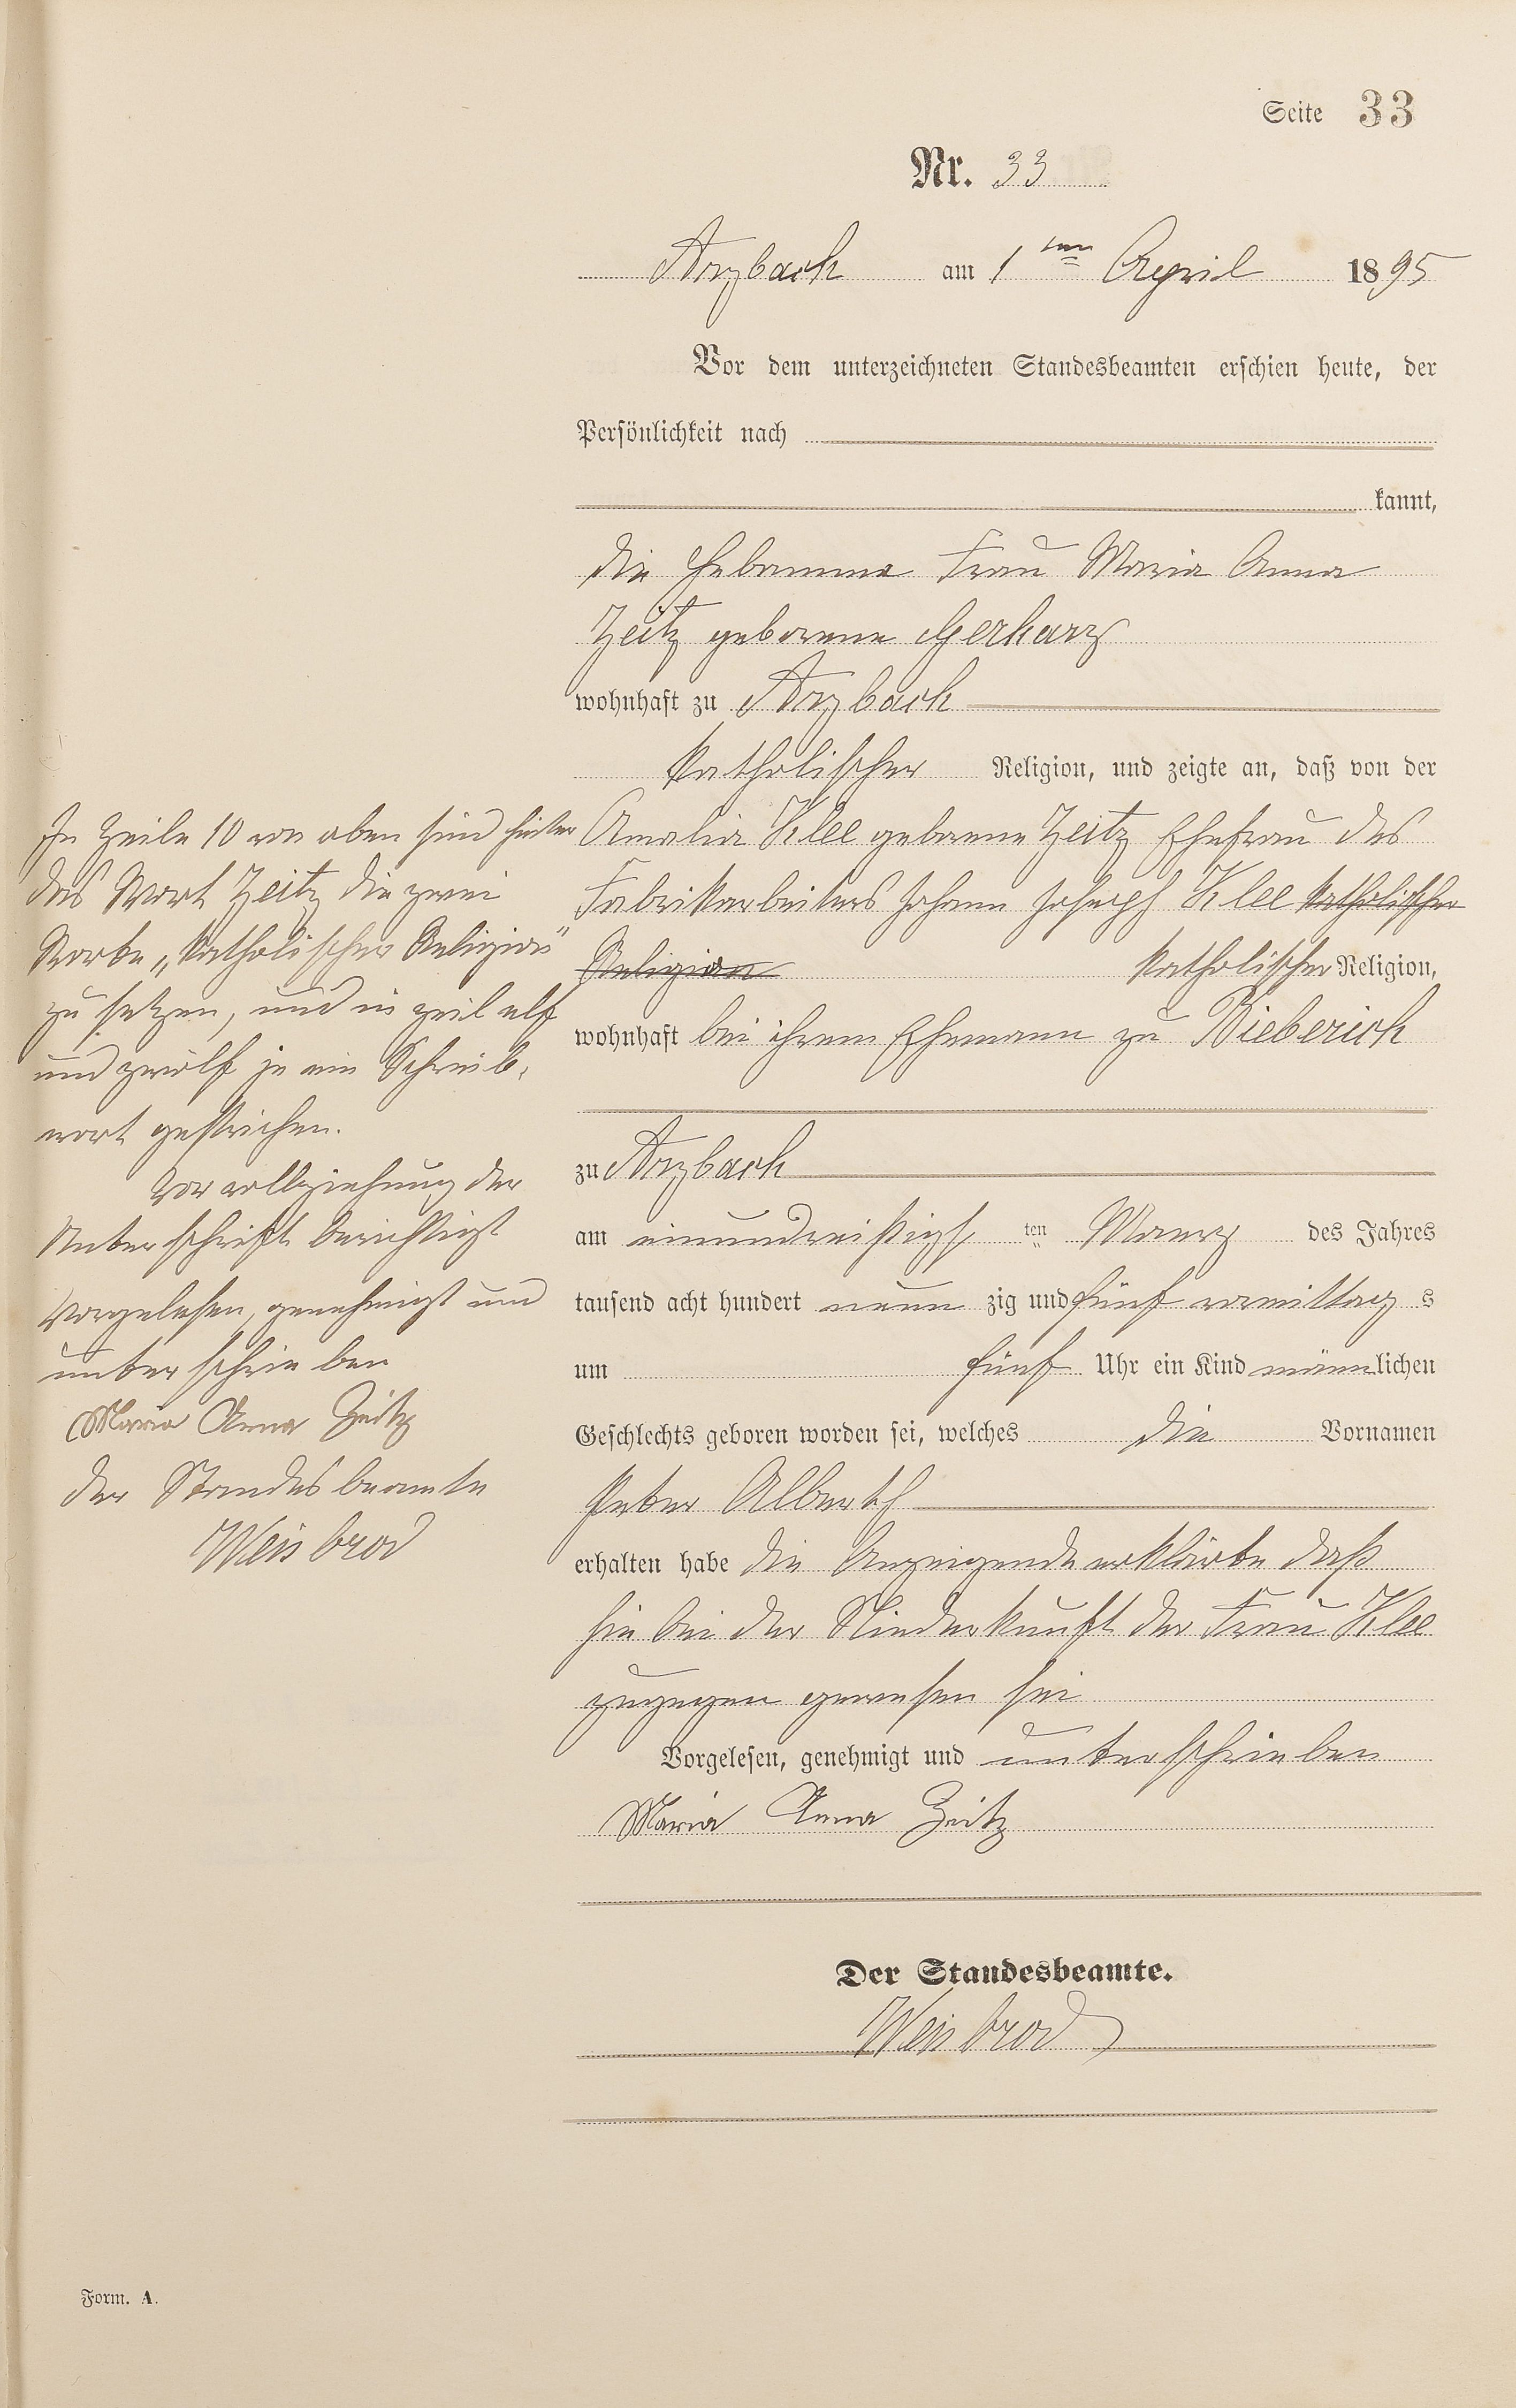 Seite 33
Nr. 33
Arzbach am 1ten April 1895
Vor dem unterzeichneten Standesbeamten erschien heute, der
Persönlichkeit nach
kannt,
die Hebamme Frau Maria Anna
Zeitz geborene Gerharz
wohnhaft zu Arzbach
katholischer Religion, und zeigte an, daß von der
Amalia Klee geborene Zeitz Ehefrau des
Fabrikarbeiters Johann Joseph Klee katholischer
Religion katholischer Religion,
wohnhaft bei ihrem Ehemann zu Bieberich
zu Arzbach
am einunddreißigst ten Maerz des Jahres
tausend acht hundert neun zig und fünf vormittag s
um fünf Uhr ein Kind männlichen
Geschlechts geboren worden sei, welches die Vornamen
Peter Alberth
erhalten habe die Anzeigende erklärte daß
sie bei der Niederkunft der Frau Klee
zugegen gewesen sei
Vorgelesen, genehmigt und unterschrieben
Maria Anna Zeitz
Der Standesbeamte.
Weisbrod
In Zeile 10 von oben sind hinter
das Wort Zeitz die zwei
Worte „katholischer Religion"
zu setzen, und in zeil elf
und zwölf je ein Schreib,
wort gestrichen.
Vor vollziehung der
Unterschrift berichtigt
Vorgelesen, genehmigt und
unterschrieben
Maria Anna Zeitz
der Standesbeamte
Weisbrod
Form. A.